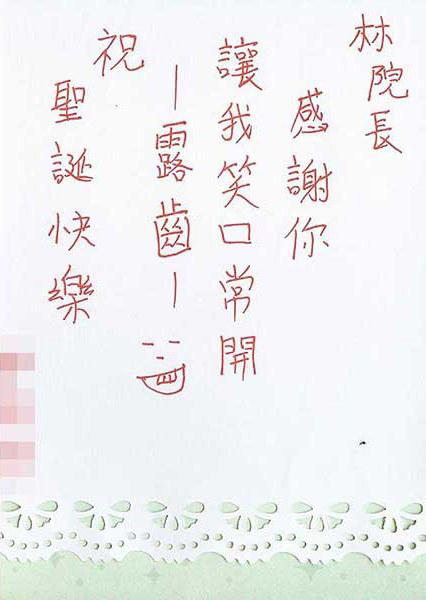 林院長
感謝你
讓我笑口常開
—露齒—
祝
聖誕快樂